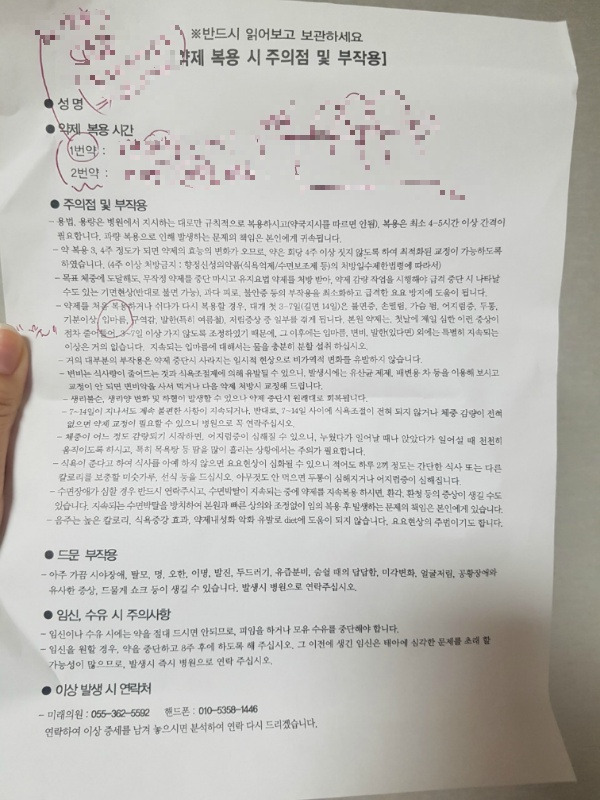 ※반드시 읽어보고 보관하세요
약제 복용 시 주의점 및 부작용]
● 성 명
● 약제 복용 시간
1번약 :
2번약 :
● 주의점 및 부작용
– 용법, 용량은 병원에서 지시하는 대로만 규칙적으로 복용하시고(약국지시를 따르면 안됨), 복용은 최소 4~5시간 이상 간격이
필요합니다. 과량 복용으로 인해 발생하는 문제의 책임은 본인에게 귀속됩니다.
– 약 복용 3, 4주 정도가 되면 약제의 효능의 변화가 오므로, 약은 회당 4주 이상 짓지 않도록 하여 최적화된 교정이 가능하도록
하였습니다. (4주 이상 처방금지 : 향정신성의약품(식욕억제/수면보조제 등)의 처방일수제한법령에 따라서)
– 목표 체중에 도달해도, 무작정 약제를 중단 마시고 유지요법 약제를 처방 받아, 약제 감량 작업을 시행해야 급격 중단 시 나타날
수도 있는 기면현상(반대로 불면 가능), 과다 피로, 불안증 등의 부작용을 최소화하고 급격한 요요 방지에 도움이 됩니다.
– 약제를 처음 복용하거나 쉬다가 다시 복용할 경우, 대개 첫 3~7일(길면 14일)은 불면증, 손떨림, 가슴 뜀, 어지럼증, 두통,
기분이상, 입마름, 구역감, 발한(특히 여름철), 저림증상 중 일부를 겪게 됩니다. 본원 약제는, 첫날에 제일 심한 이런 증상이
점차 줄어들어, 3~7일 이상 가지 않도록 조정하였기 때문에, 그 이후에는 입마름, 변비, 발한(있다면) 외에는 특별히 지속되는
이상은 거의 없습니다. 지속되는 입마름에 대해서는 물을 충분히 섭취 하십시오.
– 거의 대부분의 부작용은 약제 중단시 사라지는 일시적 현상으로 비가역적 변화를 유발하지 않습니다.
– 변비는 식사량이 줄어드는 것과 식욕조절제에 의해 유발될 수 있으니, 발생시에는 유산균 제제, 배변용 차 등을 이용해 보시고
교정이 안 되면 변비약을 사서 먹거나 다음 약제 처방시 교정해 드립니다.
– 생리불순, 생리양 변화 및 하혈이 발생할 수 있으나 약제 중단시 원래대로 회복됩니다.
– 7~14일이 지나서도 계속 불편한 사항이 지속되거나, 반대로, 7~14일 사이에 식욕조절이 전혀 되지 않거나 체중 감량이 전혀
없으면 약제 교정이 필요할 수 있으니 병원으로 꼭 연락주십시오.
– 체중이 어느 정도 감량되기 시작하면, 어지럼증이 심해질 수 있으니, 누웠다가 일어날 때나 앉았다가 일어설 때 천천히
움직이도록 하시고, 특히 목욕탕 등 땀을 많이 흘리는 상황에서는 주의가 필요합니다.
– 식욕이 준다고 하여 식사를 아예 하지 않으면 요요현상이 심화될 수 있으니 적어도 하루 2끼 정도는 간단한 식사 또는 다른
칼로리를 보충할 미숫가루, 선식 등을 드십시오. 아무것도 안 먹으면 두통이 심해지거나 어지럼증이 심해집니다
– 수면장애가 심할 경우 반드시 연락주시고, 수면박탈이 지속되는 중에 약제를 지속복용 하시면, 환각, 환청 등의 증상이 생길 수도
있습니다. 지속되는 수면박탈을 방치하여 본원과 빠른 상의와 조정없이 임의 복용 후 발생하는 문제의 책임은 본인에게 있습니다.
– 음주는 높은 칼로리, 식욕증강 효과, 약제내성화 악화 유발로 diet에 도움이 되지 않습니다. 요요현상의 주범이기도 합니다.
● 드문 부작용
– 아주 가끔 시야장애, 탈모, 멍, 오한, 이명, 발진, 두드러기, 유즙분비, 숨쉴 때의 답답함, 미각변화, 얼굴저림, 공황장애와
유사한 증상, 드물게 쇼크 등이 생길 수 있습니다. 발생시 병원으로 연락주십시오.
● 임신, 수유 시 주의사항
– 임신이나 수유 시에는 약을 절대 드시면 안되므로, 피임을 하거나 모유 수유를 중단해야 합니다.
– 임신을 원할 경우, 약을 중단하고 8주 후에 하도록 해 주십시오. 그 이전에 생긴 임신은 태아에 심각한 문제를 초래 할
가능성이 많으므로, 발생시 즉시 병원으로 연락 주십시오.
● 이상 발생 시 연락처
– 미래의원 : 055-362-5592 핸드폰 : 010-5358-1446
연락하여 이상 증세를 남겨 놓으시면 분석하여 연락 다시 드리겠습니다.